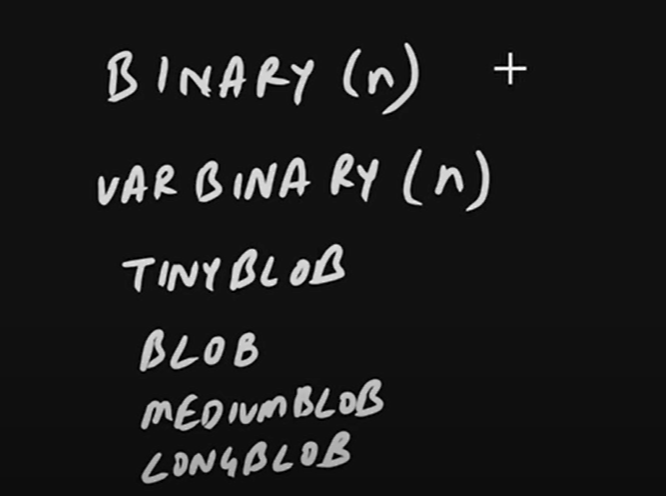 BINARY (n)
VARBINARY (n)
TINYBLOB
BLOB
MEDIUMBLOB
LONGBLOB